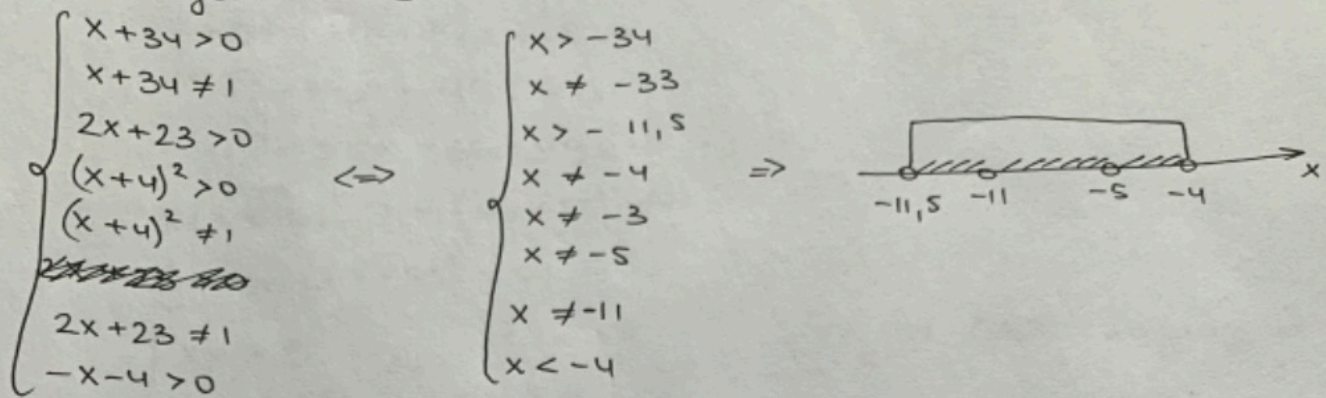 x+34>0
x+34≠1
2x+23>0
(x+4)²>0
(x+4)²≠1
2x+23≠1
-x-4>0
<=>
x>-34
x ≠ -33
x>-11,5
x ≠ -4
x ≠ -3
x ≠ -5
x ≠-11
x<-4
=>
-11,5 -11 -5 -4 x